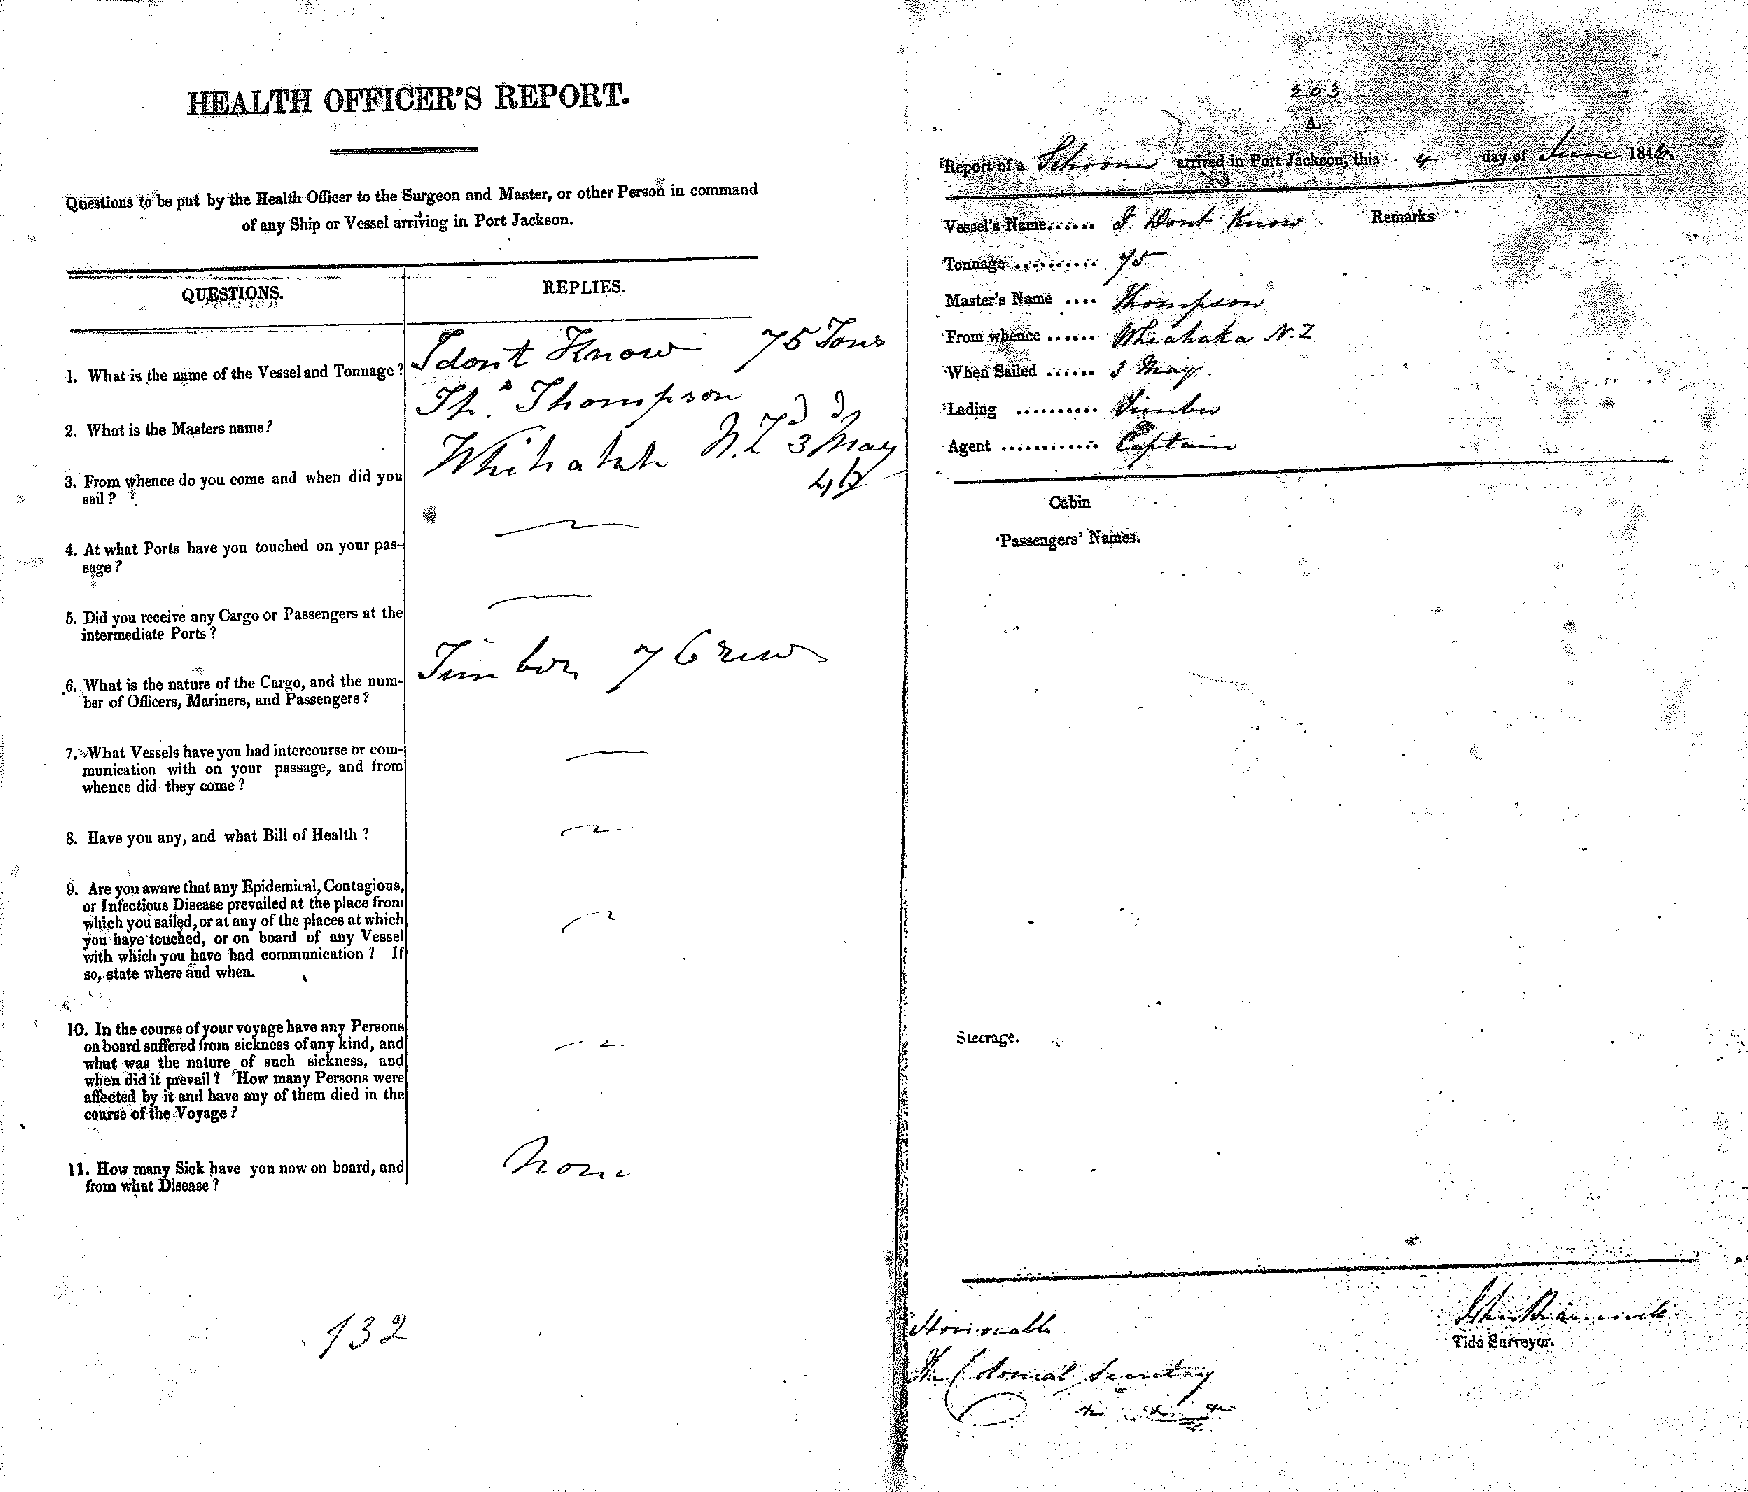 HEALTH OFFICER'S REPORT.
Questions to be put by the Health Officer to the Surgeon and Master, or other Person in command
of any Ship or Vessel arriving in Port Jackson.
QUESTIONS.
REPLIES.
1. What is the name of the Vessel and Tonnage?
I dont Know 75 Tons
2. What is the Masters name?
Ths. Thompson
3. From whence do you come and when did you
sail?
N.Z 3d May
4. At what Ports have you touched on your pas-
sage?
5. Did you receive any Cargo or Passengers at the
intermediate Ports?
6. What is the nature of the Cargo, and the num-
ber of Officers, Mariners, and Passengers?
Timber 7 Crew
7. What Vessels have you had intercourse or com-
munication with on your passage, and from
whence did they come?
8. Have you any, and what Bill of Health?
9. Are you aware that any Epidemical, Contagious,
or Infectious Disease prevailed at the place from
which you sailed, or at any of the places at which
you have touched, or on board of any Vessel
with which you have had communication? If
so, state where and when.
10. In the course of your voyage have any Persons
on board suffered from sickness of any kind, and
what was the nature of such sickness, and
when did it prevail? How many Persons were
affected by it and have any of them died in the
course of the Voyage?
11. How many Sick have you now on board, and
from what Disease?
None
132
303
A.
Report of a Schooner arrived in Port Jackson, this 4 day of June 184
Vessel's Name...... I Dont Know
Remarks
Tonnage .......... 75
Master's Name .... Thompson
From whence ...... N.Z
When Sailed ...... 3 May.
Lading .......... Timber
Agent ............ Captain
Cabin
Passengers' Names.
Steerage.
Tide Surveyor.
Honorable
The Colonial Secretary